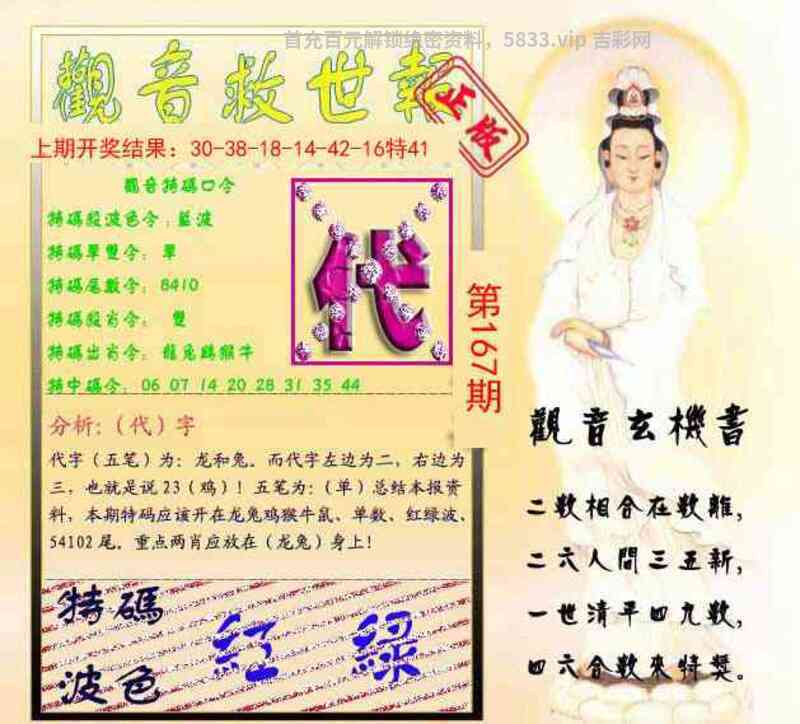 首充百元解锁绝密资料，5833.vip 吉彩网
觀音救世報
正版
上期开奖结果：30-38-18-14-42-16特41
觀音特碼口令
特碼殺波色令：藍波
特碼單雙令：單
特碼尾數令：8410
特碼殺肖令： 雙
特碼出肖令：龍兔鷄猴牛
特中碼令：06 07 14 20 28 31 35 44
代
第167期
分析:（代）字
代字（五笔）为：龙和兔。而代字左边为二，右边为
三，也就是说23（鸡）！五笔为:（单）总结本报资
料，本期特码应该开在龙兔鸡猴牛鼠、单数、红绿波、
54102尾。重点两肖应放在（龙兔）身上！
特碼
波色
紅 綠
觀音玄機書
二数相合在数離，
二六人間三五新，
一世清平四九數，
四六合數來特獎。